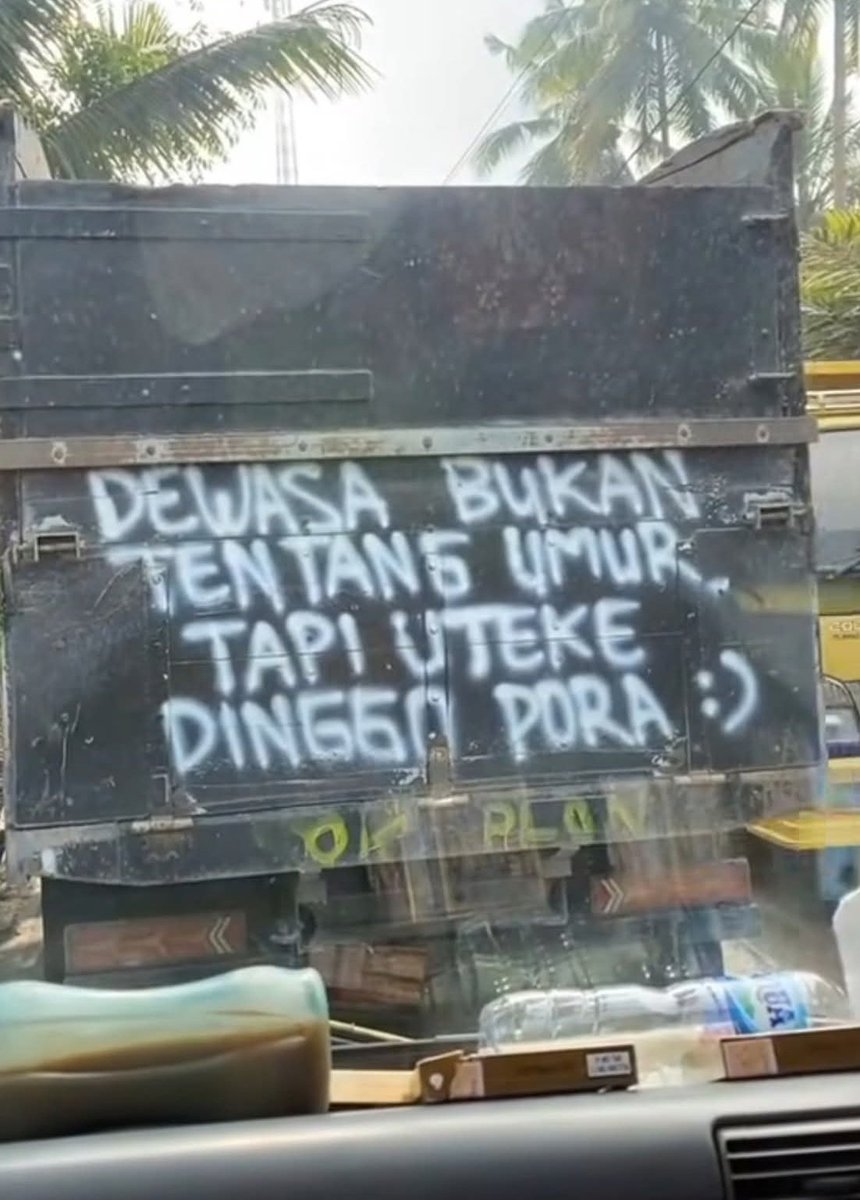 DEWASA BUKAN
TENTANG UMUR
TAPI UTEKE
DINGGO PORA :)